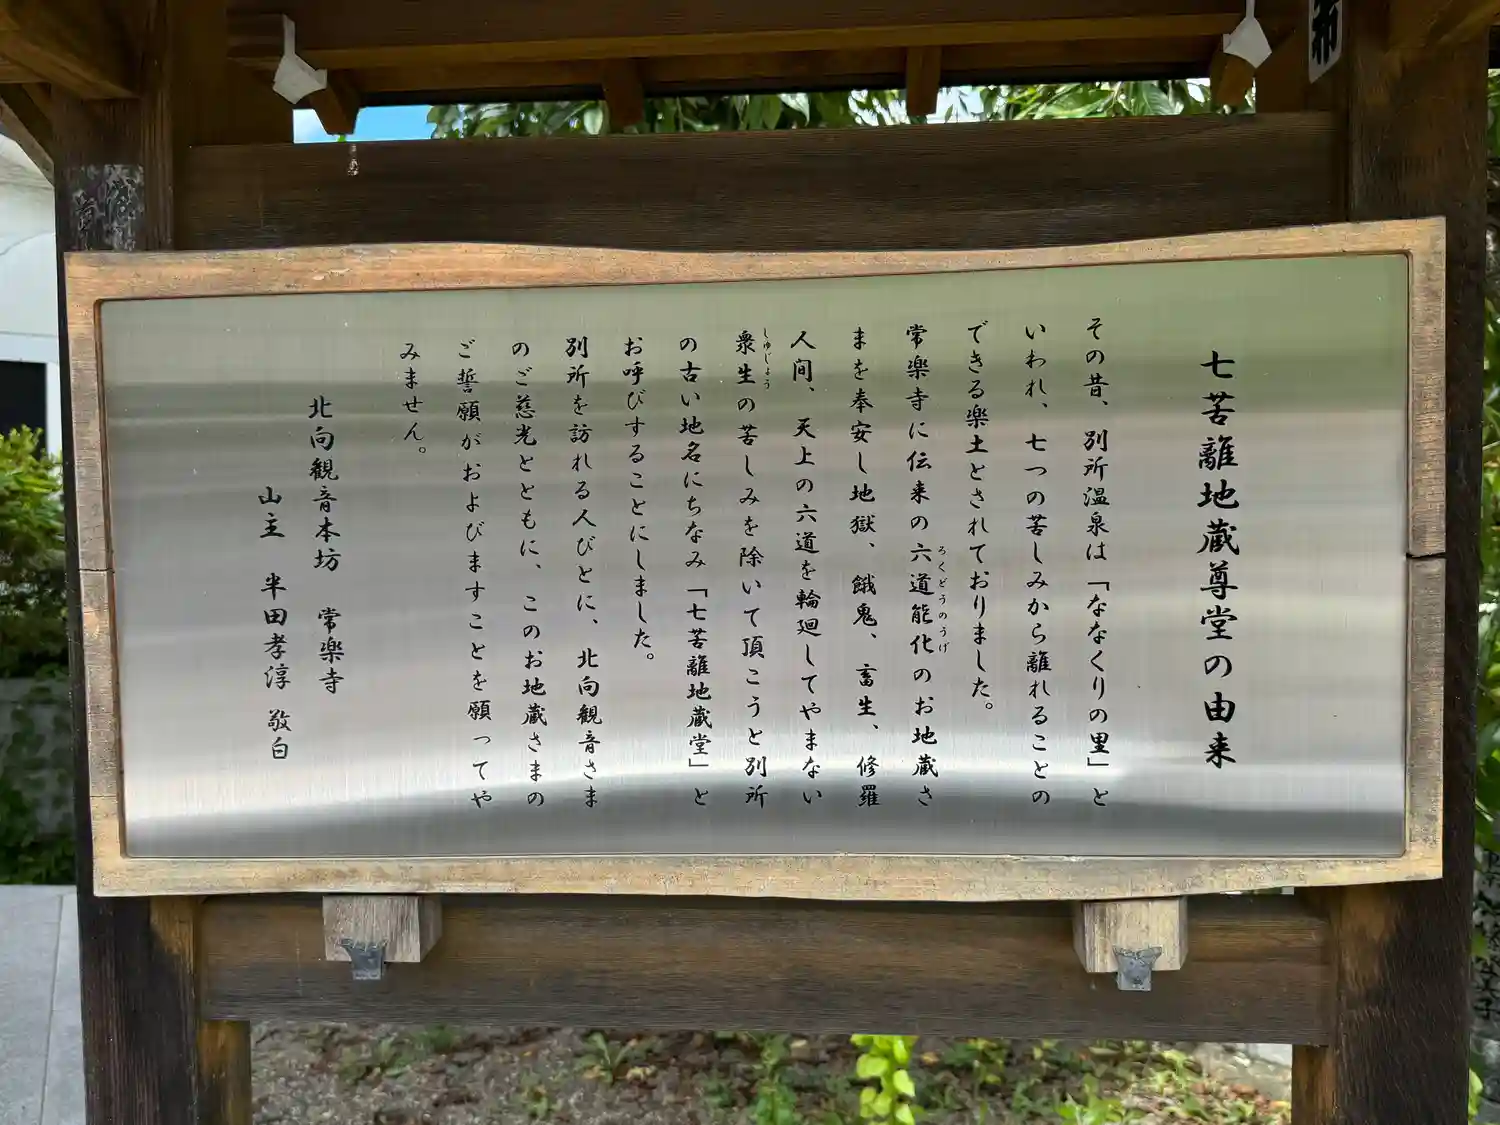 七苦離地蔵尊堂の由来
その昔、別所温泉は「ななくりの里」と
いわれ、七つの苦しみから離れることの
できる楽土とされておりました。
常楽寺に伝来の六道能化のお地蔵さ
ろくどうのうげ
まを奉安し地獄、餓鬼、畜生、修羅
人間、天上の六道を輪廻してやまない
衆生の苦しみを除いて頂こうと別所
しゅじょう
の古い地名にちなみ「七苦離地蔵堂」と
お呼びすることにしました。
別所を訪れる人びとに、北向観音さま
のご慈光とともに、このお地蔵さまの
ご誓願がおよびますことを願ってや
みません。
北向観音本坊 常楽寺
山主 半田孝淳 敬白